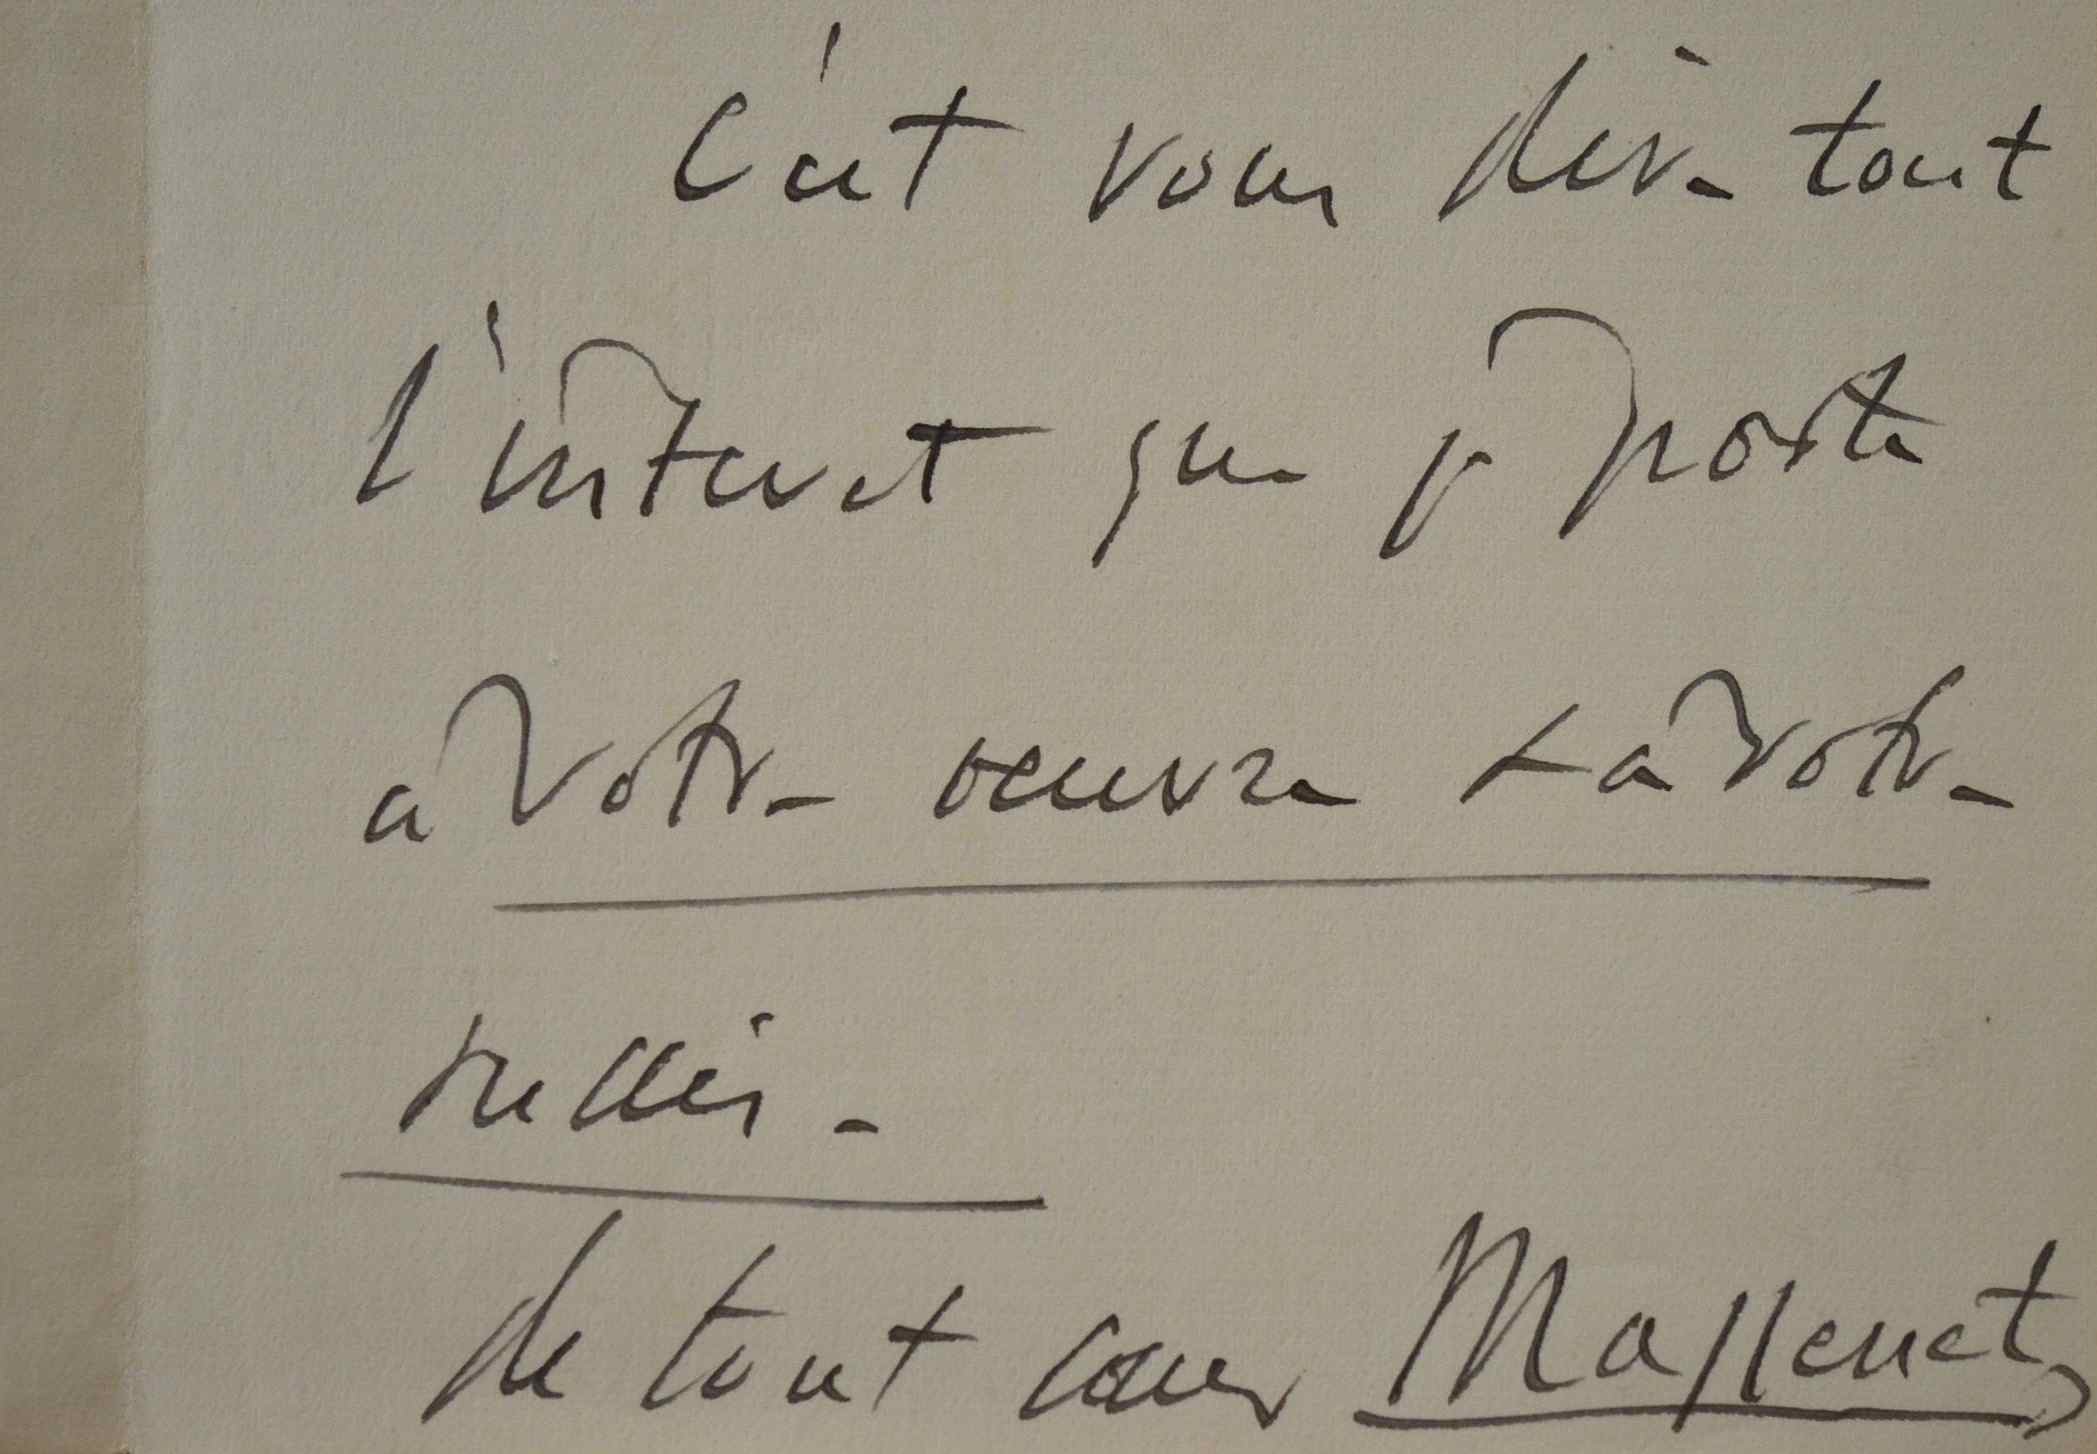 C'est vous dire tout
l'interet que je porte
a votre oeuvre & à votre
succès -
de tout coeur Massenet